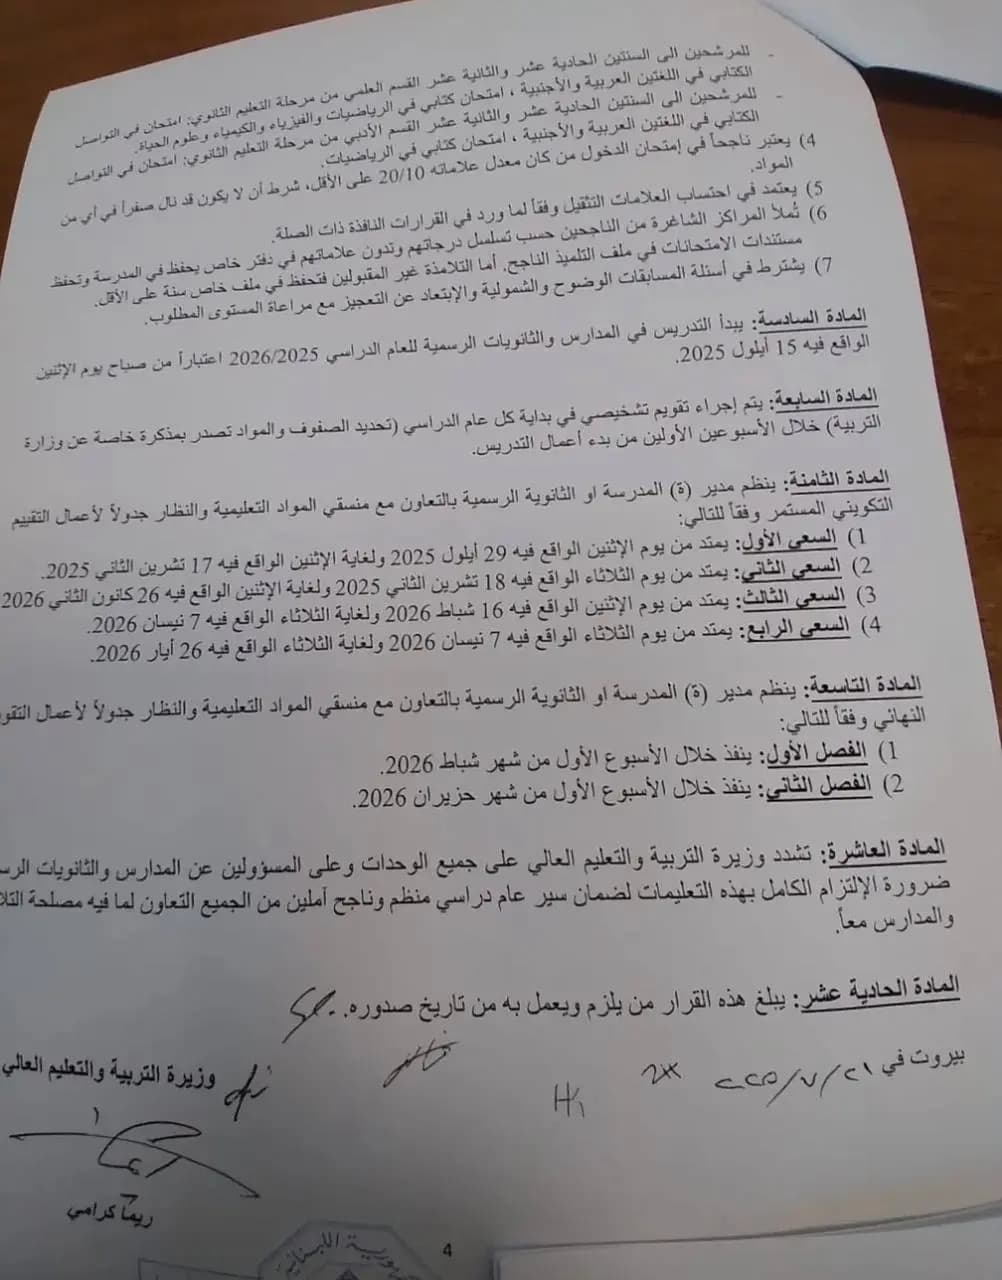 - للمرشحين الى السنتين الحادية عشر والثانية عشر القسم العلمي من مرحلة التعليم الثانوي: امتحان في التواصل
الكتابي في اللغتين العربية والأجنبية ، امتحان كتابي في الرياضيات والفيزياء والكيمياء وعلوم الحياة.
- للمرشحين الى السنتين الحادية عشر والثانية عشر القسم الأدبي من مرحلة التعليم الثانوي: امتحان في التواصل
الكتابي في اللغتين العربية والأجنبية ، امتحان كتابي في الرياضيات.
4) يعتبر ناجحاً في إمتحان الدخول من كان معدل علاماته 20/10 على الأقل، شرط أن لا يكون قد نال صفراً في أي من
المواد.
5) يعتمد في احتساب العلامات التثقيل وفقاً لما ورد في القرارات النافذة ذات الصلة.
6) تُملأ المراكز الشاغرة من الناجحين حسب تسلسل درجاتهم وتدون علاماتهم في دفتر خاص يحفظ في المدرسة وتحفظ
مستندات الامتحانات في ملف التلميذ الناجح. أما التلامذة غير المقبولين فتحفظ في ملف خاص سنة على الأقل.
7) يشترط في أسئلة المسابقات الوضوح والشمولية والإبتعاد عن التعجيز مع مراعاة المستوى المطلوب.
المادة السادسة: يبدأ التدريس في المدارس والثانويات الرسمية للعام الدراسي 2026/2025 اعتباراً من صباح يوم الإثنين
الواقع فيه 15 أيلول 2025.
المادة السابعة: يتم إجراء تقويم تشخيصي في بداية كل عام الدراسي (تحديد الصفوف والمواد تصدر بمذكرة خاصة عن وزارة
التربية) خلال الأسبوعين الأولين من بدء أعمال التدريس.
المادة الثامنة: ينظم مدير (ة) المدرسة او الثانوية الرسمية بالتعاون مع منسقي المواد التعليمية والنظار جدولاً لأعمال التقييم
التكويني المستمر وفقاً للتالي:
1) السعي الأول: يمتد من يوم الإثنين الواقع فيه 29 أيلول 2025 ولغاية الإثنين الواقع فيه 17 تشرين الثاني 2025.
2) السعي الثاني: يمتد من يوم الثلاثاء الواقع فيه 18 تشرين الثاني 2025 ولغاية الإثنين الواقع فيه 26 كانون الثاني 2026
3) السعي الثالث: يمتد من يوم الإثنين الواقع فيه 16 شباط 2026 ولغاية الثلاثاء الواقع فيه 7 نيسان 2026.
4) السعي الرابع: يمتد من يوم الثلاثاء الواقع فيه 7 نيسان 2026 ولغاية الثلاثاء الواقع فيه 26 أيار 2026.
المادة التاسعة: ينظم مدير (ة) المدرسة او الثانوية الرسمية بالتعاون مع منسقي المواد التعليمية والنظار جدولاً لأعمال التقو
النهائي وفقاً للتالي:
1) الفصل الأول: ينفذ خلال الأسبوع الأول من شهر شباط 2026.
2) الفصل الثاني: ينفذ خلال الأسبوع الأول من شهر حزيران 2026.
المادة العاشرة: تشدد وزيرة التربية والتعليم العالي على جميع الوحدات وعلى المسؤولين عن المدارس والثانويات الرس
ضرورة الإلتزام الكامل بهذه التعليمات لضمان سير عام دراسي منظم وناجح آملين من الجميع التعاون لما فيه مصلحة التلا
والمدارس معاً.
المادة الحادية عشر: يبلغ هذه القرار من يلزم ويعمل به من تاريخ صدوره.
بيروت في
وزيرة التربية والتعليم العالي
ريما كرامي
4